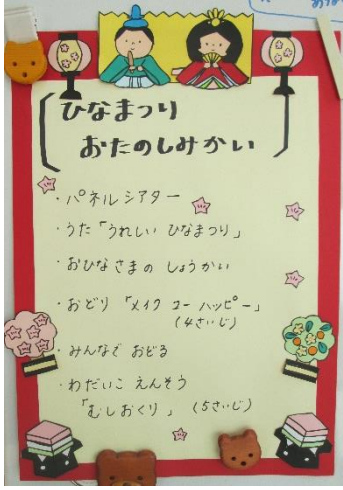 ひなまつり
おたのしみかい
・パネルシアター
・うた「うれしい ひなまつり」
・おひなさまの しょうかい
・おどり 「メイク ユー ハッピー」
(4さいじ)
・みんなで おどる
・わだいこ えんそう
「むしおくり」 (5さいじ)